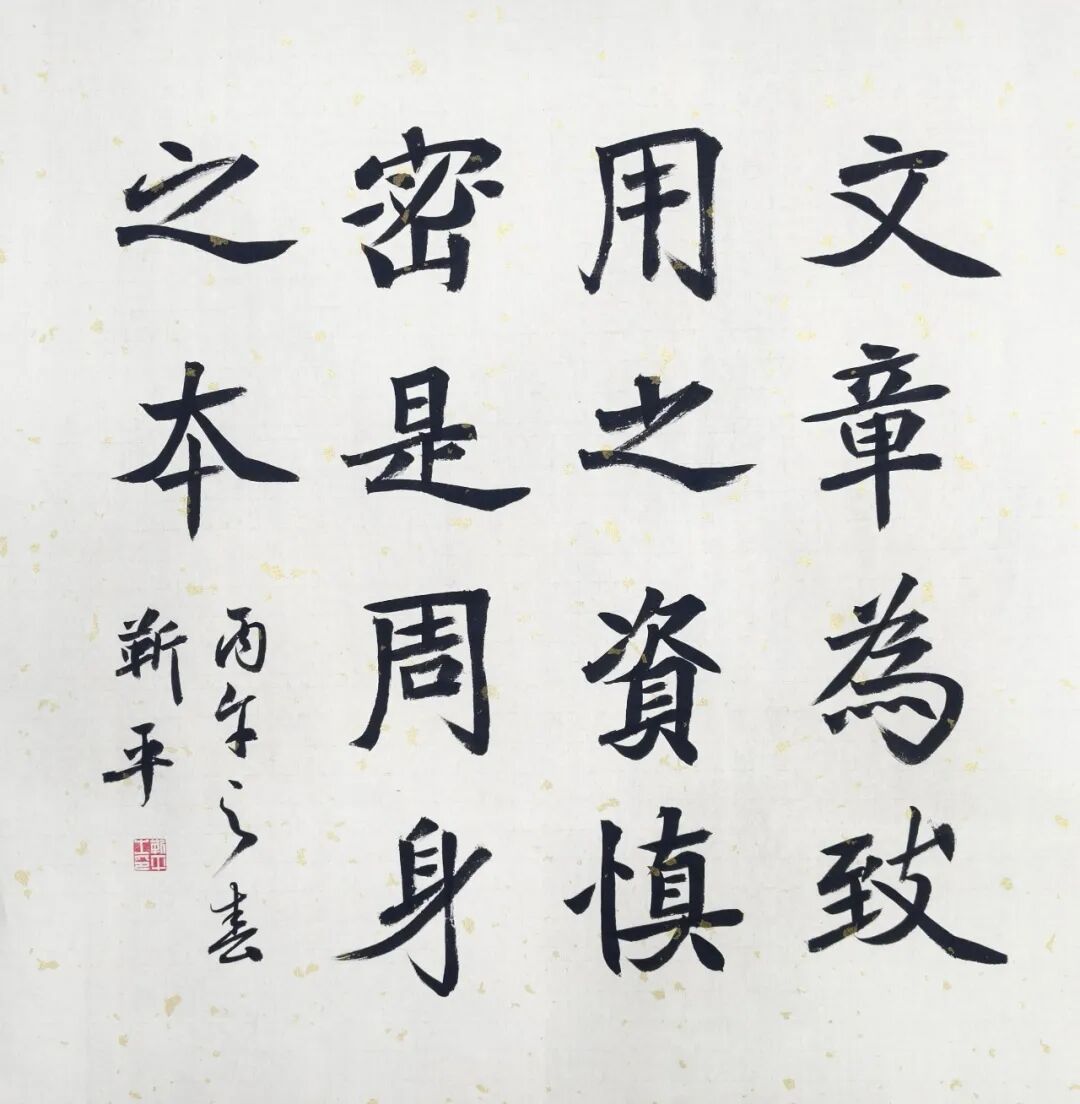 文章為致
用之資慎
密是周身
之本
丙午之春
蕲平